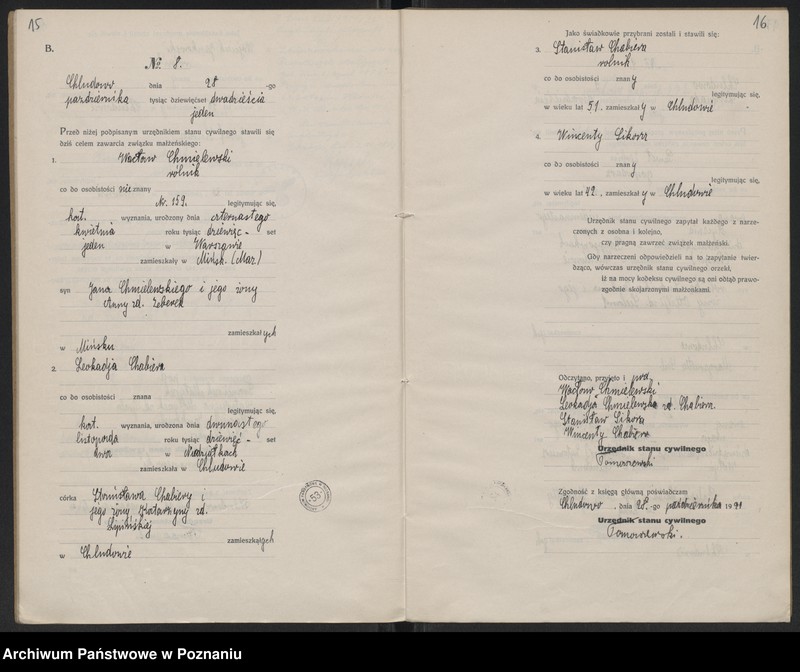 15
B.
№ 8.
Chludowo dnia 28 -go
października tysiąc dziewięćset dwadzieścia
jeden
Przed niżej podpisanym urzędnikiem stanu cywilnego stawili się
dziś celem zawarcia związku małżeńskiego:
1. Wacław Chmielewski
rolnik
co do osobistości nieznany
Nr. 159. legitymując się,
kat. wyznania, urodzony dnia czternastego
kwietnia roku tysiąc dziewięć- set
jeden w Warszawie
zamieszkały w Mińsk. (Maz)
syn Jana Chmielewskiego i jego żony
Anny zd. Zeberek
zamieszkałych
w Mińsku
2. Leokadja Chabiera
co do osobistości znana
legitymując się,
kat. wyznania, urodzona dnia dwunastego
listopada roku tysiąc dziewięć- set
dwa w
zamieszkała w Chludowie
córka Stanisława Chabiery i
jego żony Katarzyny zd.
Lipińskiej
zamieszkałych
w Chludowie
16
Jako świadkowie przybrani zostali i stawili się:
3. Stanisław Chabiera
rolnik
co do osobistości znany
legitymując się,
w wieku lat 51, zamieszkały w Chludowie
4. Wincenty Sikora
co do osobistości znany
legitymując się,
w wieku lat 42, zamieszkały w Chludowie
Urzędnik stanu cywilnego zapytał każdego z narze-
czonych z osobna i kolejno,
czy pragną zawrzeć związek małżeński.
Gdy narzeczeni odpowiedzieli na to zapytanie twier-
dząco, wówczas urzędnik stanu cywilnego orzekł,
iż na mocy kodeksu cywilnego są oni odtąd prawo-
zgodnie skojarzonymi małżonkami.
Odczytano, przyjęto i pod.
Wacław Chmielewski
Leokadja Chmielewska zd. Chabiera
Stanisław Sikora
Wincenty Chabiera
Urzędnik stanu cywilnego
Pomorzewski
Zgodność z księgą główną poświadczam
Chludowo, dnia 28.-go października 1921
Urzędnik stanu cywilnego
Pomorzewski.
Archiwum Państwowe w Poznaniu